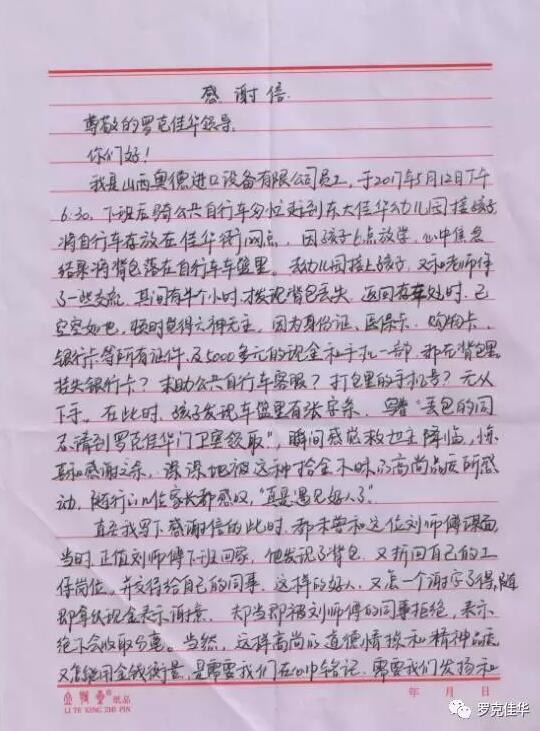 感谢信
尊敬的罗克佳华领导:
你们好!
我是山西奥德进口设备有限公司员工,于2017年5月12日下午
6:30,下班后骑公共自行车匆忙赶到东大佳华幼儿园接孩子,
将自行车存放在佳华街网点,因孩子6点放学,心中焦急
结果将背包落在自行车车篮里。去幼儿园接上孩子,又和老师作
了一些交流,其间有半个小时,才发现背包丢失,返回存车处时,已
空空如也,顿时觉得六神无主,因为身份证、医保卡、购物卡、
银行卡等所有证件,及5000多元的现金和手机一部,都在背包里
挂失银行卡?求助公共自行车客服?打包里的手机号?无从
下手。在此时,孩子发现车篮里有张字条,写着"丢包的同
志请到罗克佳华门卫室领取",瞬间感觉救世主降临,惊
喜和感谢之余,深深地被这种拾金不昧的高尚品质所感
动,随行的几位家长都感叹,"真是遇见好人了"。
直至我写下感谢信的此时,都未曾和这位刘师傅谋面,
当时,正值刘师傅下班回家,他发现了背包,又折回自己的工
作岗位,并交待给自己的同事,这样的好人,又怎一个谢字了得,随
即拿钱现金表示谢意,却当即被刘师傅的同事拒绝,表示
绝不会收取分毫。当然,这样高尚的道德情操和精神品质,
又怎能用金钱衡量,是需要我们在心中铭记,需要我们发扬和
纸品
LI TE XING ZHI PIN
年 月 日
罗克佳华